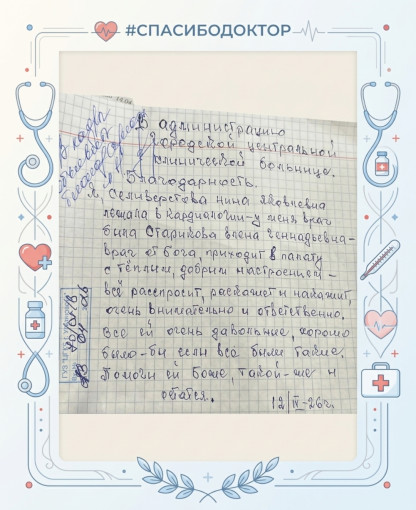 #СПАСИБОДОКТОР
В администрацию
городской центральной
клинической больнице.
Благодарность.
Я, Селиверстова Нина Яковлевна
лежала в кардиологии-у меня врач
была Старикова Елена Геннадьевна-
врач от бога, приходит в палату
с тёплым, добрым настроением-
всё расспросит, расскажет и накажит,
очень внимательно и ответственно.
Все ей очень давольные, хорошо
было-бы если все были такие.
Помоги ей Боже, такой-же и
остатся.
12/IV-26г.